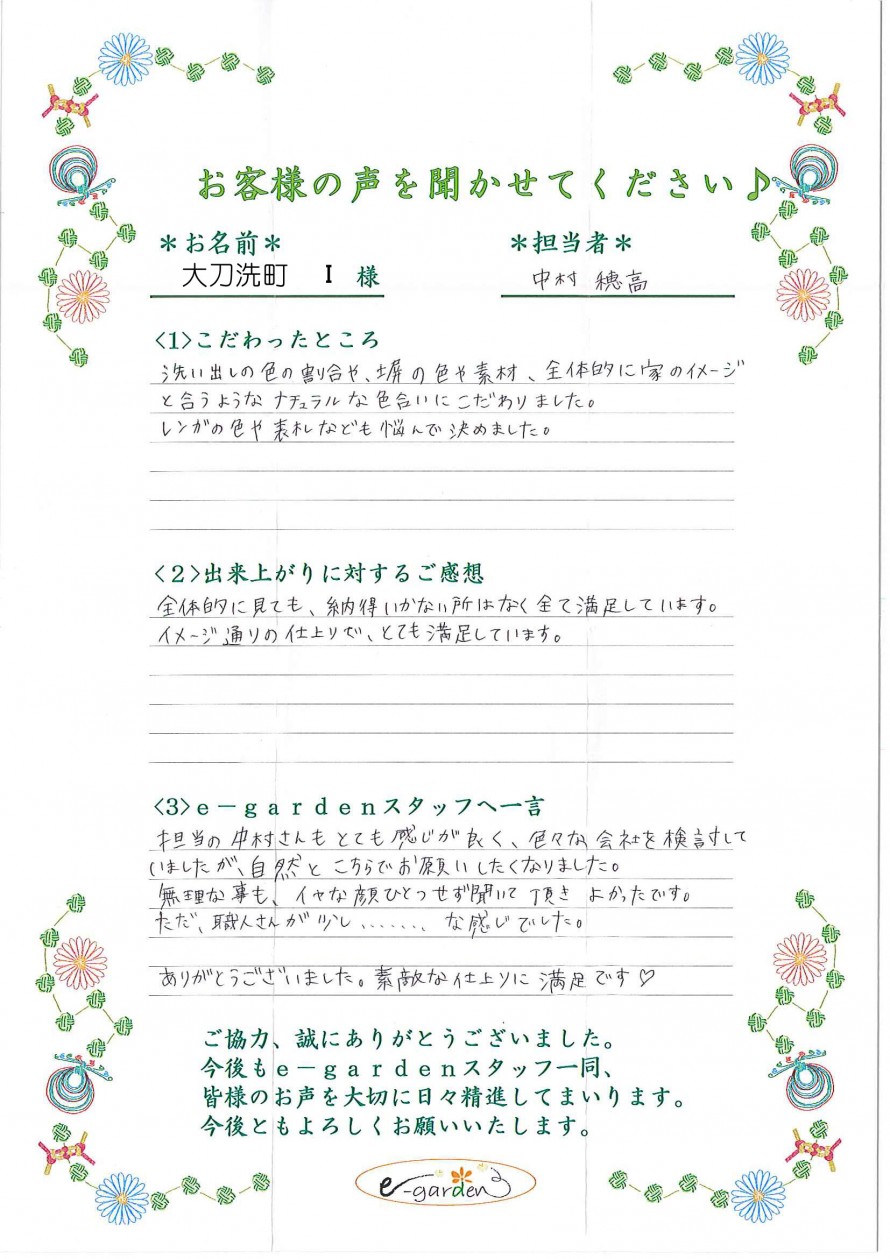 お客様の声を聞かせてください♪
＊お名前＊ ＊担当者＊
大刀洗町 I 様 中村 穂高
<1>こだわったところ
洗い出しの色の割合や、塀の色や素材、全体的に家のイメージ
と合うようなナチュラルな色合いにこだわりました。
レンガの色や表札なども悩んで決めました。
<2>出来上がりに対するご感想
全体的に見ても、納得いかない所はなく全て満足しています。
イメージ通りの仕上りで、とても満足しています。
<3>e－gardenスタッフへ一言
担当の中村さんもとても感じが良く、色々な会社を検討して
いましたが、自然とこちらでお願いしたくなりました。
無理な事も、イヤな顔ひとつせず聞いて頂きよかったです。
ただ、職人さんが少し、、、、、、、な感じでした。
ありがとうございました。素敵な仕上りに満足です♡
ご協力、誠にありがとうございました。
今後もe－gardenスタッフ一同、
皆様のお声を大切に日々精進してまいります。
今後ともよろしくお願いいたします。
e-garden